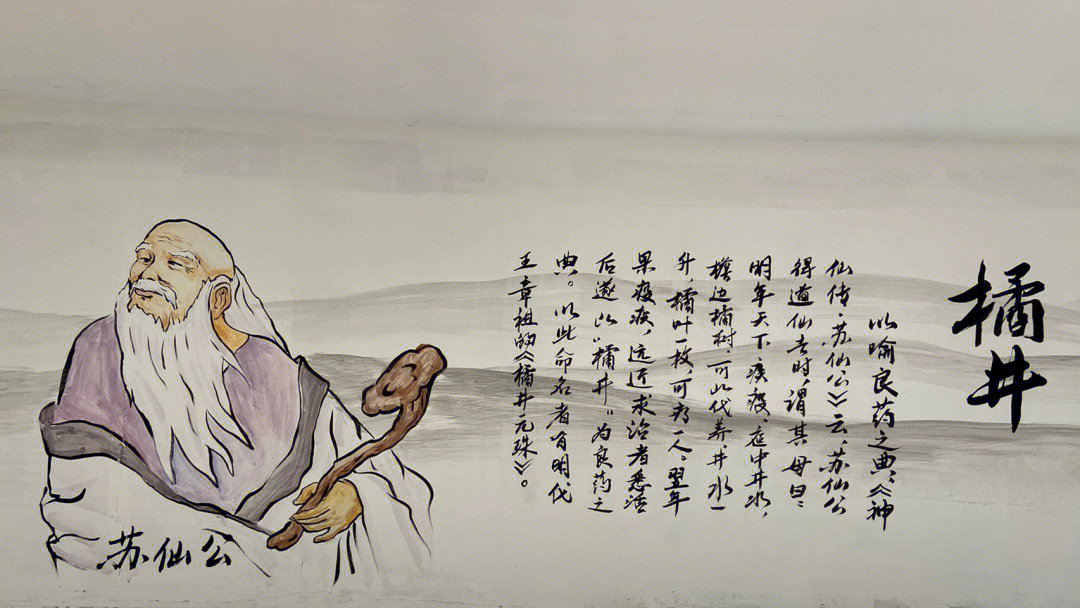 橘井
以喻良药之典、《神
仙传·苏仙公》云，苏仙公
得道仙去时，谓其母曰：
明年天下疾疫，庭中井水，
檐边橘树，可以代养，井水一
升，橘叶一枚，可疗一人，翌年
果疫疾，远近求治者悉活
后遂以“橘井”为良药之
典。以此命名者有明代
王章祖的《橘井元珠》。
苏仙公